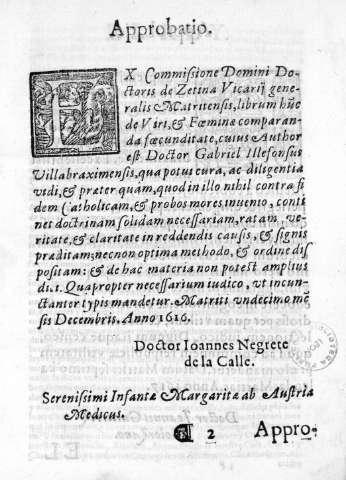 Approbatio.
EX Commissione Domini Do-
ctoris de Zetina Vicarij gene-
ralis Matritensis, librum hũc
de Viri, & Fœminæ comparan-
da fœcunditate, cuius Author
est Doctor Gabriel Illefonsus
Villabraximensis, qua potui cura, ac diligentia
vidi, & præter quam, quod in illo nihil contra fi
dem Catholicam, & probos mores inuento, conti
net doctrinam solidam necessariam, ratam, ve-
ritate, & claritate in reddendis causis, & signis
præditam; necnon optima methodo, & ordine dis
positam: & de hac materia non potest amplius
dici. Quapropter necessarium iudico, vt incun-
ctanter typis mandetur. Matriti vndecimo mẽ
sis Decembris. Anno 1616.
Doctor Ioannes Negrete
de la Calle.
Serenissimi Infantæ Margaritæ ab Austria
Medicus.
¶ 2 Appro-